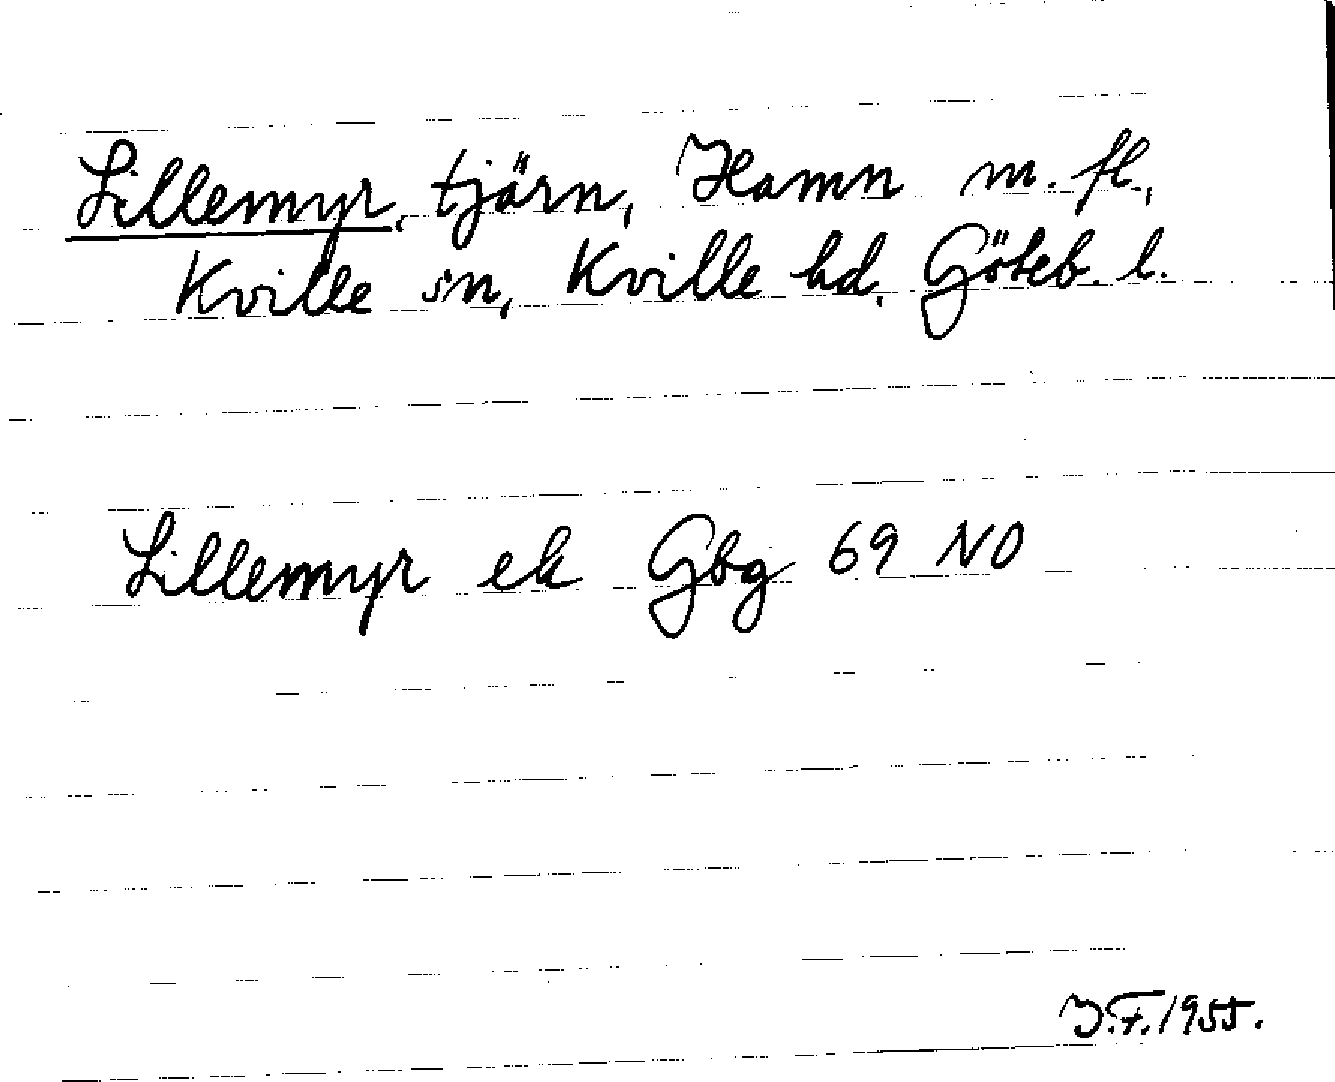 Lillemyr, tjärn, Hamn m. fl.,
Kville sn, Kville hd, Göteb. l.
Lillemyr ek Gbg 69 NO
J.F. 1955.